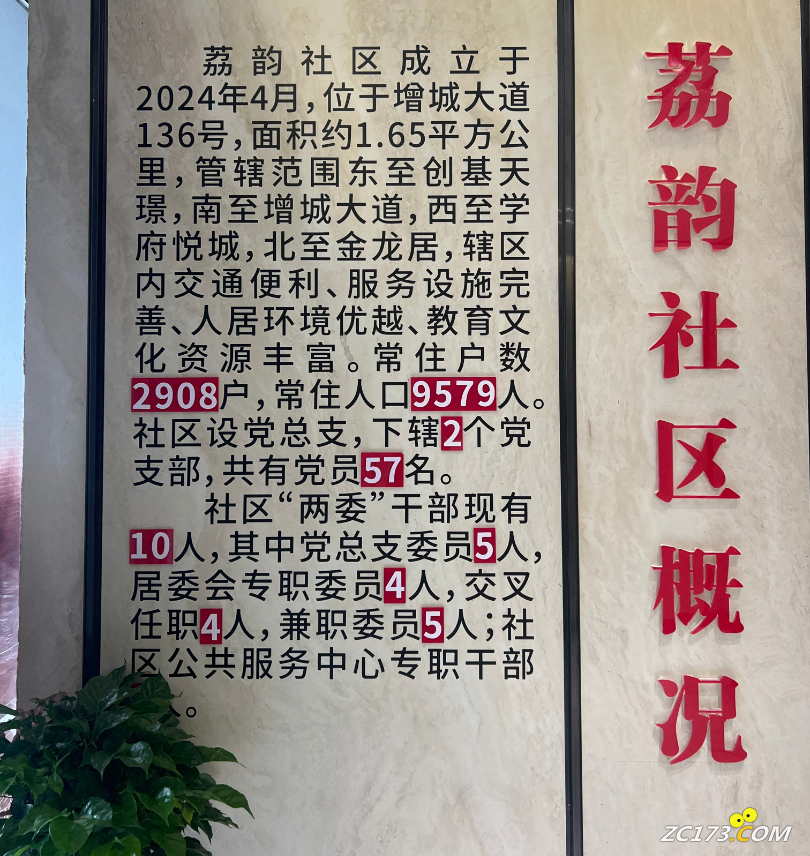 荔韵社区概况
荔韵社区成立于
2024年4月,位于增城大道
136号,面积约1.65平方公
里,管辖范围东至创基天
璟,南至增城大道,西至学
府悦城,北至金龙居,辖区
内交通便利、服务设施完
善、人居环境优越、教育文
化资源丰富。常住户数
2908户,常住人口9579人。
社区设党总支,下辖2个党
支部,共有党员57名。
社区“两委”干部现有
10人,其中党总支委员5人,
居委会专职委员4人,交叉
任职4人,兼职委员5人;社
区公共服务中心专职干部
人。
ZC173.COM